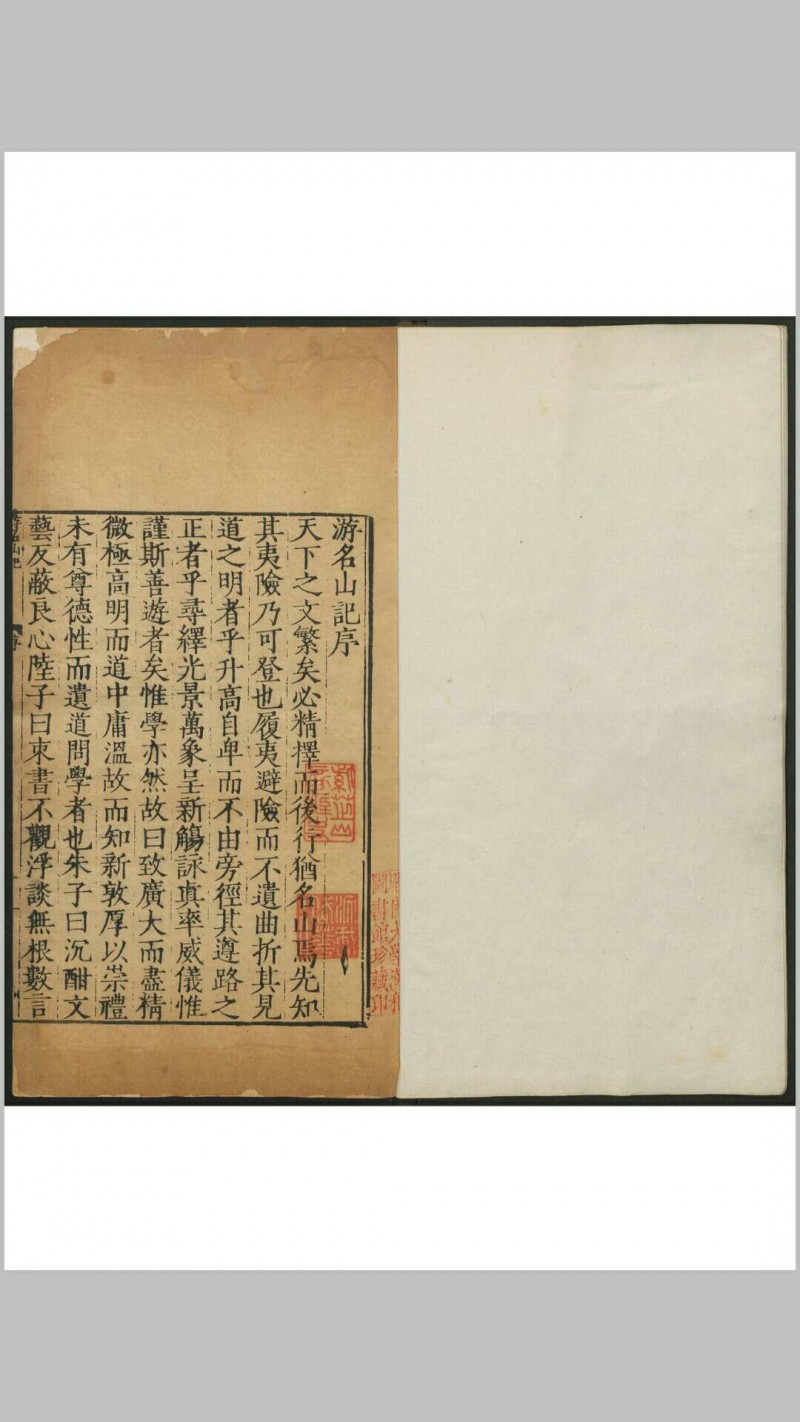 游名山記序
天下之文繁矣必精擇而後行猶名山焉先知
其夷險乃可登也履夷避險而不遺曲折其見
道之明者乎升高自卑而不由旁徑其遵路之
正者乎尋繹光景萬象呈新觴詠真率威儀惟
謹斯善遊者矣惟學亦然故曰致廣大而盡精
微極高明而道中庸溫故而知新敦厚以崇禮
未有尊德性而遺道問學者也朱子曰沉酣文
藝反蔽良心陸子曰束書不觀浮談無根數言
圖書館珍藏印